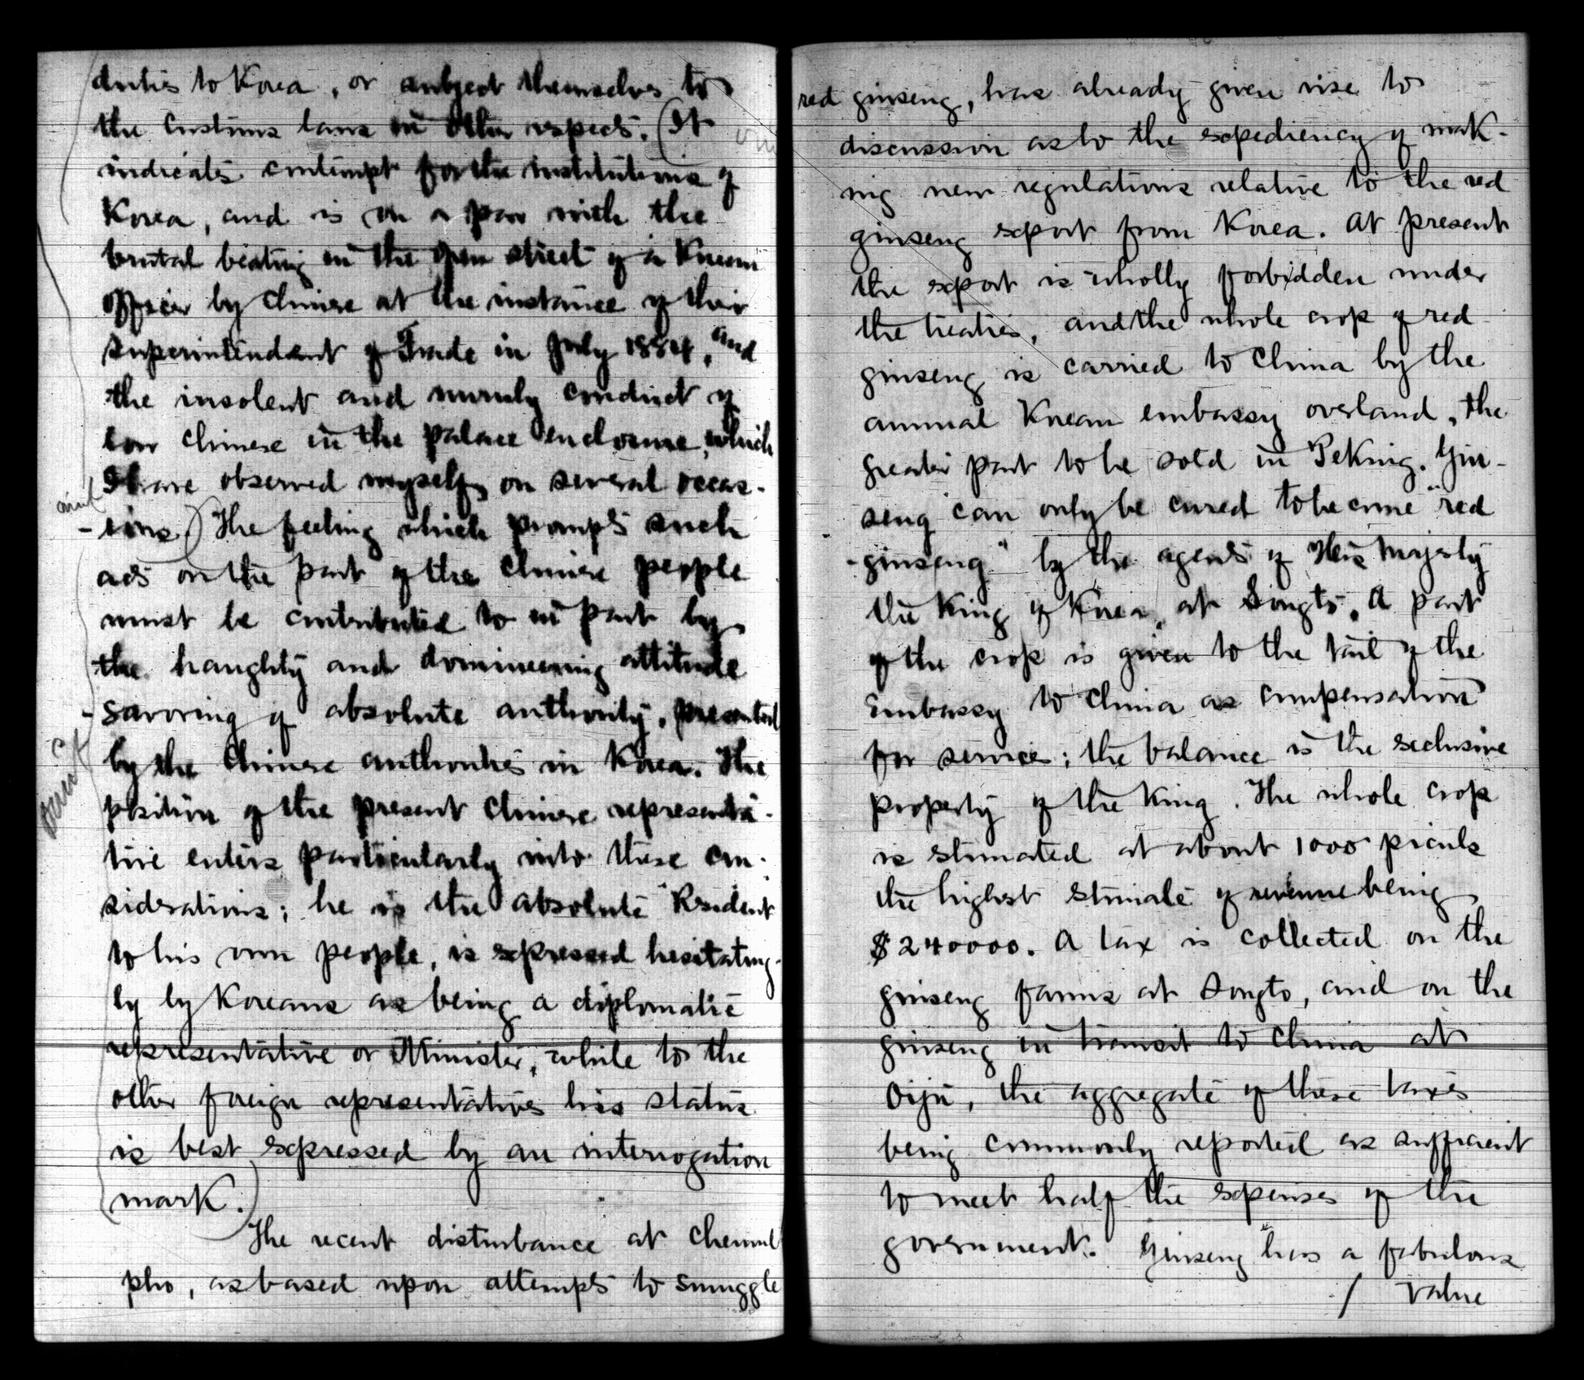 duties to Korea, or subject themselves to
the customs laws in other respects. (It
indicates contempt for the institutions of
Korea, and is on a par with the
brutal beating in the open street of a Korean
officer by Chinese at the instance of their
Superintendent of Trade in July 1884, and
the insolent and unruly conduct of
low Chinese in the palace enclosure, which
I have observed myself on several occas-
omit
-ions.) The feeling which prompts such
acts on the part of the Chinese people
must be contributed to in part by
the haughty and domineering attitude
savoring of absolute authority, presented
by the Chinese authorities in Korea. The
omit
position of the present Chinese representa-
tive enters particularly into these con-
siderations; he is the absolute "Resident
to his own people, is expressed hesitating-
ly by Koreans as being a diplomatic
representative or Minister, while to the
other foreign representatives his status
is best expressed by an interrogation
mark.)
The recent disturbance at Chemul
pho, as based upon attempts to smuggle
red ginseng, has already given rise to
discussion as to the expediency of mak-
ing new regulations relative to the red
ginseng export from Korea. At present
the export is wholly forbidden under
the treaties, and the whole crop of red
ginseng is carried to China by the
annual Korean embassy overland, the
greater part to be sold in Peking. Gin-
seng can only be cured to become "red
-ginseng" by the agents of His Majesty
the King of Korea, at Songto. A part
of the crop is given to the suit of the
Embassy to China as compensation
for services; the balance is the exclusive
property of the King. The whole crop
is estimated at about 1000 piculs
the highest estimate of revenue being
$240000. A tax is collected on the
ginseng farms at Songto, and on the
ginseng in transit to China at
Oiju, the aggregate of these taxes
being commonly reported as sufficient
to meet half the expenses of the
government. Ginseng has a fabulous
/ value